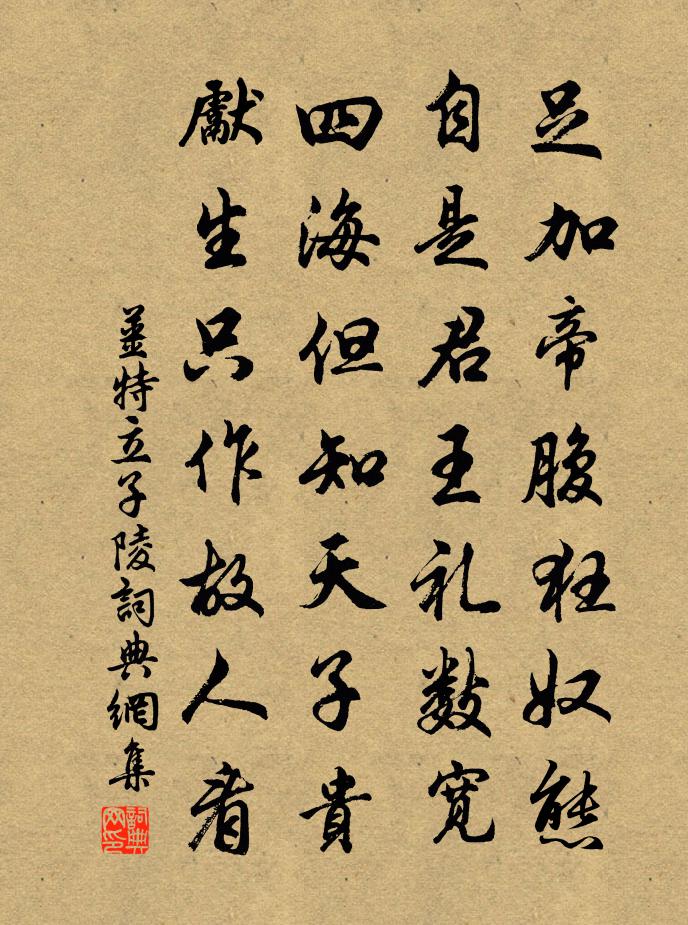 足加帝腹狂奴態
自是君王礼數寬
四海但知天子貴
獻生只作故人看
姜特立子陵詞典網集
詞典网印